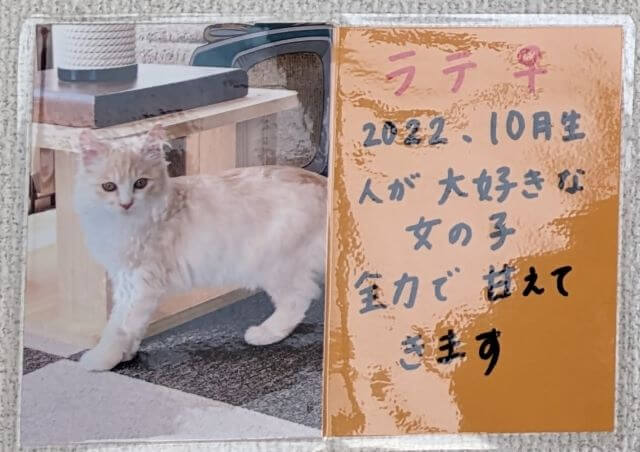 ラテ ♀
2022、10月生
人が大好きな
女の子
全力で甘えて
きます